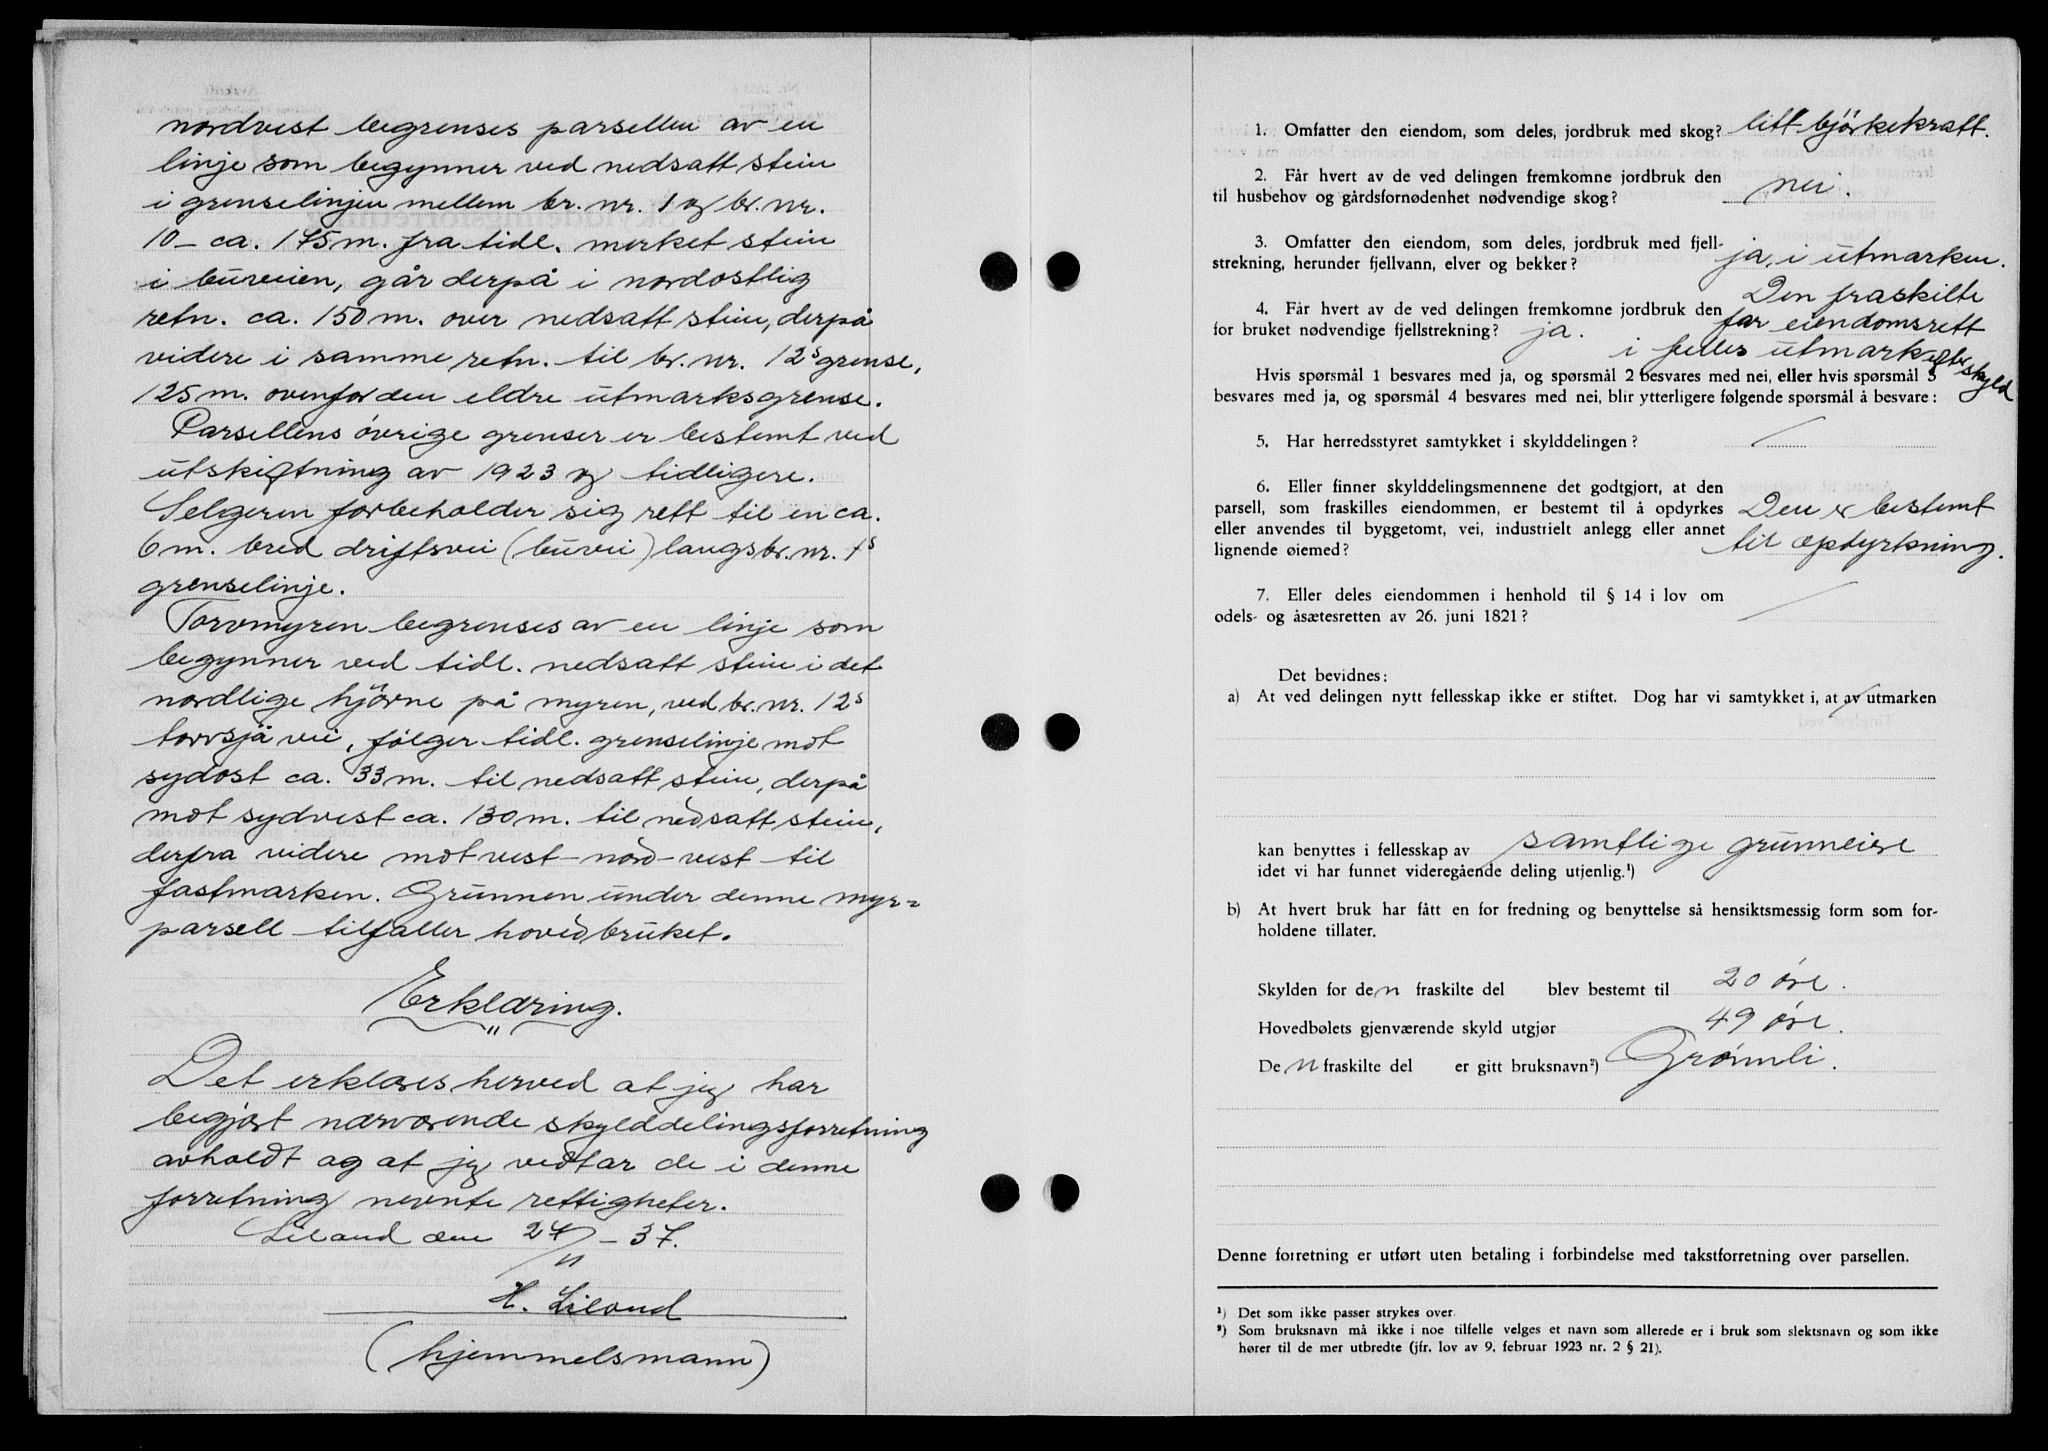 nordvest begrenses parsellen av en
linje som begynner ved nedsatt stein
i grenselinjen mellem br. nr. 1 og br. nr.
10 – ca. 175 m. fra tidl. merket stein
i buveien, går derpå i nordostlig
retn. ca. 150 m. over nedsatt stein, derpå
videre i samme retn. til br. nr. 12s grense,
125 m. ovenfor den eldre utmarksgrense.
Parsellens övrige grenser er bestemt ved
utskiftning av 1923 og tidligere.
Selgeren forbeholder sig rett til en ca.
6 m. bred driftsvei (buvei) langs br. nr. 1s
grenselinje.
Torvmyren begrenses av en linje som
begynner ved tidl. nedsatt stein i det
nordlige hjörne på myren, ved br. nr. 12s
torvsjå vei, fölger tidl. grenselinje mot
sydost ca. 33 m. til nedsatt stein, derpå
mot sydvest ca. 130 m. til nedsatt stein,
derfra videre mot vest-nord-vest til
fastmarken. Grunnen under denne myr=
parsell tilfaller hovedbruket.
Erklæring.
Det erklæres herved at jeg har
begjært nærværende skylddelingsforretning
avholdt og at jeg vedtar de i denne
forretning nevnte rettigheter.
Liland den 24/11 – 37.
H. Liland
(hjemmelsmann)
1. Omfatter den eiendom, som deles, jordbruk med skog? litt björkekratt.
2. Får hvert av de ved delingen fremkomne jordbruk den
til husbehov og gårdsfornødenhet nødvendige skog? nei.
3. Omfatter den eiendom, som deles, jordbruk med fjell-
strekning, herunder fjellvann, elver og bekker? ja, i utmarken.
4. Får hvert av de ved delingen fremkomne jordbruk den Den fraskilte
for bruket nødvendige fjellstrekning? ja. får eiendomsrett
i felles utmark efter skyld
Hvis spørsmål 1 besvares med ja, og spørsmål 2 besvares med nei, eller hvis spørsmål 3
besvares med ja, og spørsmål 4 besvares med nei, blir ytterligere følgende spørsmål å besvare:
5. Har herredsstyret samtykket i skylddelingen?
6. Eller finner skylddelingsmennene det godtgjort, at den
parsell, som fraskilles eiendommen, er bestemt til å opdyrkes Den er bestemt
eller anvendes til byggetomt, vei, industrielt anlegg eller annet
lignende øiemed? til opdyrkning.
7. Eller deles eiendommen i henhold til § 14 i lov om
odels- og åsætesretten av 26. juni 1821?
Det bevidnes:
a) At ved delingen nytt fellesskap ikke er stiftet. Dog har vi samtykket i, at av utmarken
kan benyttes i fellesskap av samtlige grunneiere
idet vi har funnet videregående deling utjenlig.¹)
b) At hvert bruk har fått en for fredning og benyttelse så hensiktsmessig form som for-
holdene tillater.
Skylden for den fraskilte del blev bestemt til 20 øre.
Hovedbølets gjenværende skyld utgjør 49 øre.
Den fraskilte del er gitt bruksnavn²) Grønnli.
Denne forretning er utført uten betaling i forbindelse med takstforretning over parsellen.
¹) Det som ikke passer strykes over.
²) Som bruksnavn må ikke i noe tilfelle velges et navn som allerede er i bruk som slektsnavn og som ikke
hører til de mer utbredte (jfr. lov av 9. februar 1923 nr. 2 § 21).